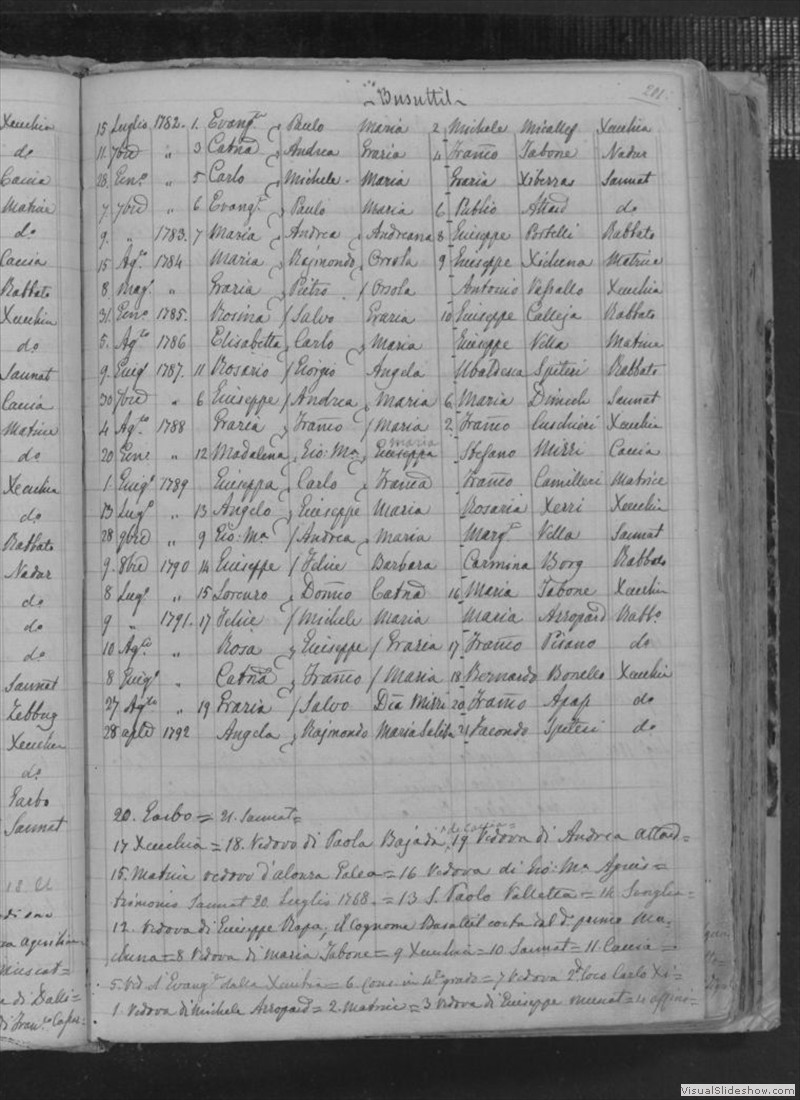 201.
Busuttil
15 Luglio 1782. 1. Evang.ª Paulo Maria 2 Michele Micallef Xeuchia
11. 7bre " 3 Catnã Andrea Grazia 4 Franco Tabone Nadur
28. Gen.º " 5 Carlo Michele Maria Grazia Xiberras Sannat
7 7bre " 6 Evang.ª Paulo Maria 6 Publio Attard do
9. " 1783. 7 Maria Andrea Andreana 8 Giuseppe Portelli Rabbato
15 Ag.º 1784 Maria Rajmondo Orsola 9 Giuseppe Xicluna Matrice
8. Mag.º " Grazia Pietro Orsola Antonio Vassallo Xeuchia
31. Gen.º 1785. Rosina Salvo Grazia 10 Giuseppe Calleja Rabbato
5. Ag.to 1786 Elisabetta Carlo Maria Giuseppe Vella Matrice
9. Giug.º 1787. 11 Rosario Giorgio Angela Ubaldesca Spiteri Rabbato
30 7bre " 6 Giuseppe Andrea Maria 6 Maria Dimech Sannat
4 Ag.to 1788 Grazia Franco Maria 2 Franco Cuschieri Xeuchia
20 Gen.º " 12 Madalena Gio: Ma Giuseppa maria Stefano Mizzi Caccia
1. Giug.º 1789 Giuseppa Carlo Franca Franco Camilleri Matrice
13 Lug.º " 13 Angelo Giuseppe Maria Rosaria Xerri Xeuchia
28 9bre " 9 Gio: Ma Andrea Maria Marg.ª Vella Sannat
9. 8bre 1790 14 Giuseppe Felice Barbara Carmina Borg Rabbato
8 Lug.º " 15 Lorenzo Domco Catnã 16 Maria Tabone Xeuchia
9 " 1791. 17 Felice Michele Maria Maria Azzopard Rabbo
10 Ag.to " Rosa Giuseppe Grazia 17 Franco Pisano do
8 Giug.º " Catnã Franco Maria 18 Bernardo Bonello Xeuchia
27 Ag.to " 19 Grazia Salvo Dca Mizzi 20 Franco Apap do
28 aple 1792 Angela Rajmondo Maria Saliba 21 Facondo Spiteri do
20. Garbo = 21. Sannat =
17 Xeuchia = 18. Vedovo di Paola Bajada, 19 Vedova di Andrea Attard =
15. Matrice vedovo d'Alonza Galea = 16 Vedova di Gio: Ma Agius =
trimonio Sannat 20 Luglio 1768. = 13 S. Paolo Valletta = 14 Senglea
12. Vedova di Giuseppe Rapa, il Cognome Busuttil
= 8 Vedovo di Maria Tabone = 9 Xeuchia = 10 Sannat = 11. Caccia =
5. dalla Xeuchia = 6. Cons. in 4to grado = 7 Vedova 2do loco Carlo Xi =
1. Vedova di Michele Azzopard = 2. Matrice = 3 Vedova di Giuseppe = 4 affini =
Xeuchia
do
Caccia
Matrice
do
Caccia
Rabbato
Xeuchia
do
Sannat
Caccia
Matrice
do
Xeuchia
do
Rabbato
Nadur
do
do
do
Sannat
Zebbug
Xeuchia
do
Garbo
Sannat
VisualSlideshow.com